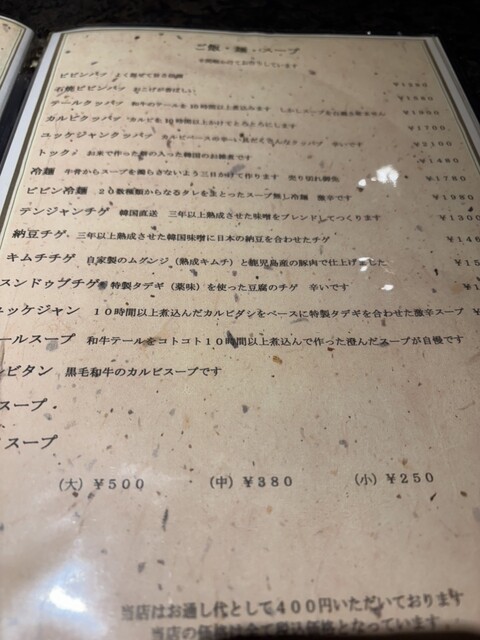 ご飯・麺・スープ
ビビンバッ よく混ぜてお召し上がり
石焼ビビンバッ おこげが香ばしい
テールクッパッ 和牛のテールを10時間以上煮込みます しかしスープは白濁させません ¥1900
カルビクッパッ カルビを10時間以上かけてとろとろにします ¥1700
ユッケジャンクッパッ カルビベースの辛い具だくさんなクッパッ 辛いです ¥2100
トック お米で作った餅の入った韓国のお雑煮です ¥1480
冷麺 牛骨からスープを濁らさないよう三日かけて作ります 売り切れ御免 ¥1780
ビビン冷麺 20数種類からなるタレをまとったスープ無し冷麺 激辛です ¥1980
テンジャンチゲ 韓国直送 三年以上熟成させた味噌をブレンドしてつくります ¥1300
納豆チゲ 三年以上熟成させた韓国味噌に日本の納豆を合わせたチゲ ¥146
キムチチゲ 自家製のムグンジ（熟成キムチ）と鹿児島産の豚肉で仕上げました ¥15
スンドゥブチゲ 特製タデギ（薬味）を使った豆腐のチゲ 辛いです ¥1
ユッケジャン 10時間以上煮込んだカルビダシをベースに特製タデギを合わせた激辛スープ ¥
ールスープ 和牛テールをコトコト10時間以上煮込んで作った澄んだスープが自慢です
ビタン 黒毛和牛のカルビスープです
スープ
スープ
（大）¥500 （中）¥380 （小）¥250
当店はお通し代として400円いただいております
当店の価格は全て税込価格となっています。